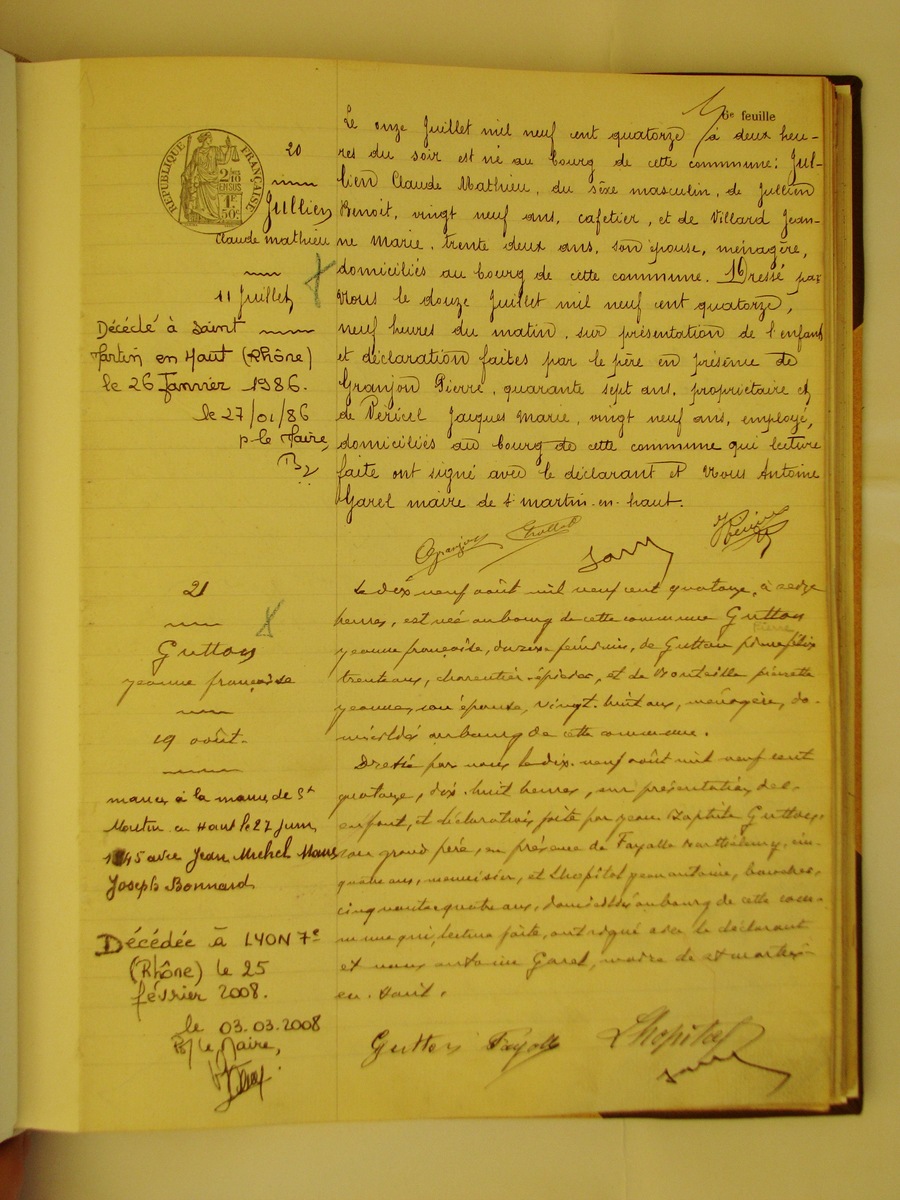 6e feuille
RÉPUBLIQUE FRANÇAISE
2/10
EN SUS
1F
50c
20
Jullien
Claude Mathieu
11 Juillet
Décédé à Saint
Martin en Haut (Rhône)
le 26 Janvier 1986.
le 27/01/86
p. le Maire,
Le onze Juillet mil neuf cent quatorze à deux heu-
res du soir est né au bourg de cette commune: Jul-
lien Claude Mathieu, du sexe masculin, de Jullien
Benoit, vingt neuf ans, cafetier, et de Villard Jean-
ne Marie, trente deux ans, son épouse, ménagère,
domiciliés au bourg de cette commune. Dressé par
Nous le douze Juillet mil neuf cent quatorze,
neuf heures du matin, sur présentation de l'enfant
et déclaration faites par le père en présence de
Granjon Pierre, quarante sept ans, propriétaire et
de Péricel Jacques Marie, vingt neuf ans, employé,
domiciliés au bourg de cette commune qui lecture
faite ont signé avec le déclarant et Nous Antoine
Garel maire de St martin-en-haut.
Granjon
21
Gutton
Jeanne françoise
19 août.
mariée à la mairie de St
Martin en Haut le 27 Juin
1945 avec Jean Michel Marie
Joseph Bonnard
Décédée à LYON 7e
(Rhône) le 25
février 2008.
le 03.03.2008
P/ le Maire,
Le dix neuf août mil neuf cent quatorze, à seize
heures, est née au bourg de cette commune Gutton
Jeanne françoise, du sexe féminin, de Gutton pierre félix
trente ans, charcutier-épicier, et de pierrette
Jeanne, son épouse, vingt-huit ans, ménagère, do-
miciliés au bourg de cette commune.
Dressé par nous le dix-neuf août mil neuf cent
quatorze, dix-huit heures, sur présentation de l'
enfant, et déclaration faite par Jean Baptiste Gutton,
son grand père, en présence de Fayolle Barthélemy, cin-
quante ans, menuisier, et Lhopital Jean antoine,
cinquante quatre ans, domiciliés au bourg de cette com-
mune qui, lecture faite, ont signé avec le déclarant
et nous antoine Garel, maire de st martin-
en-Haut.
Gutton Fayolle Lhopital